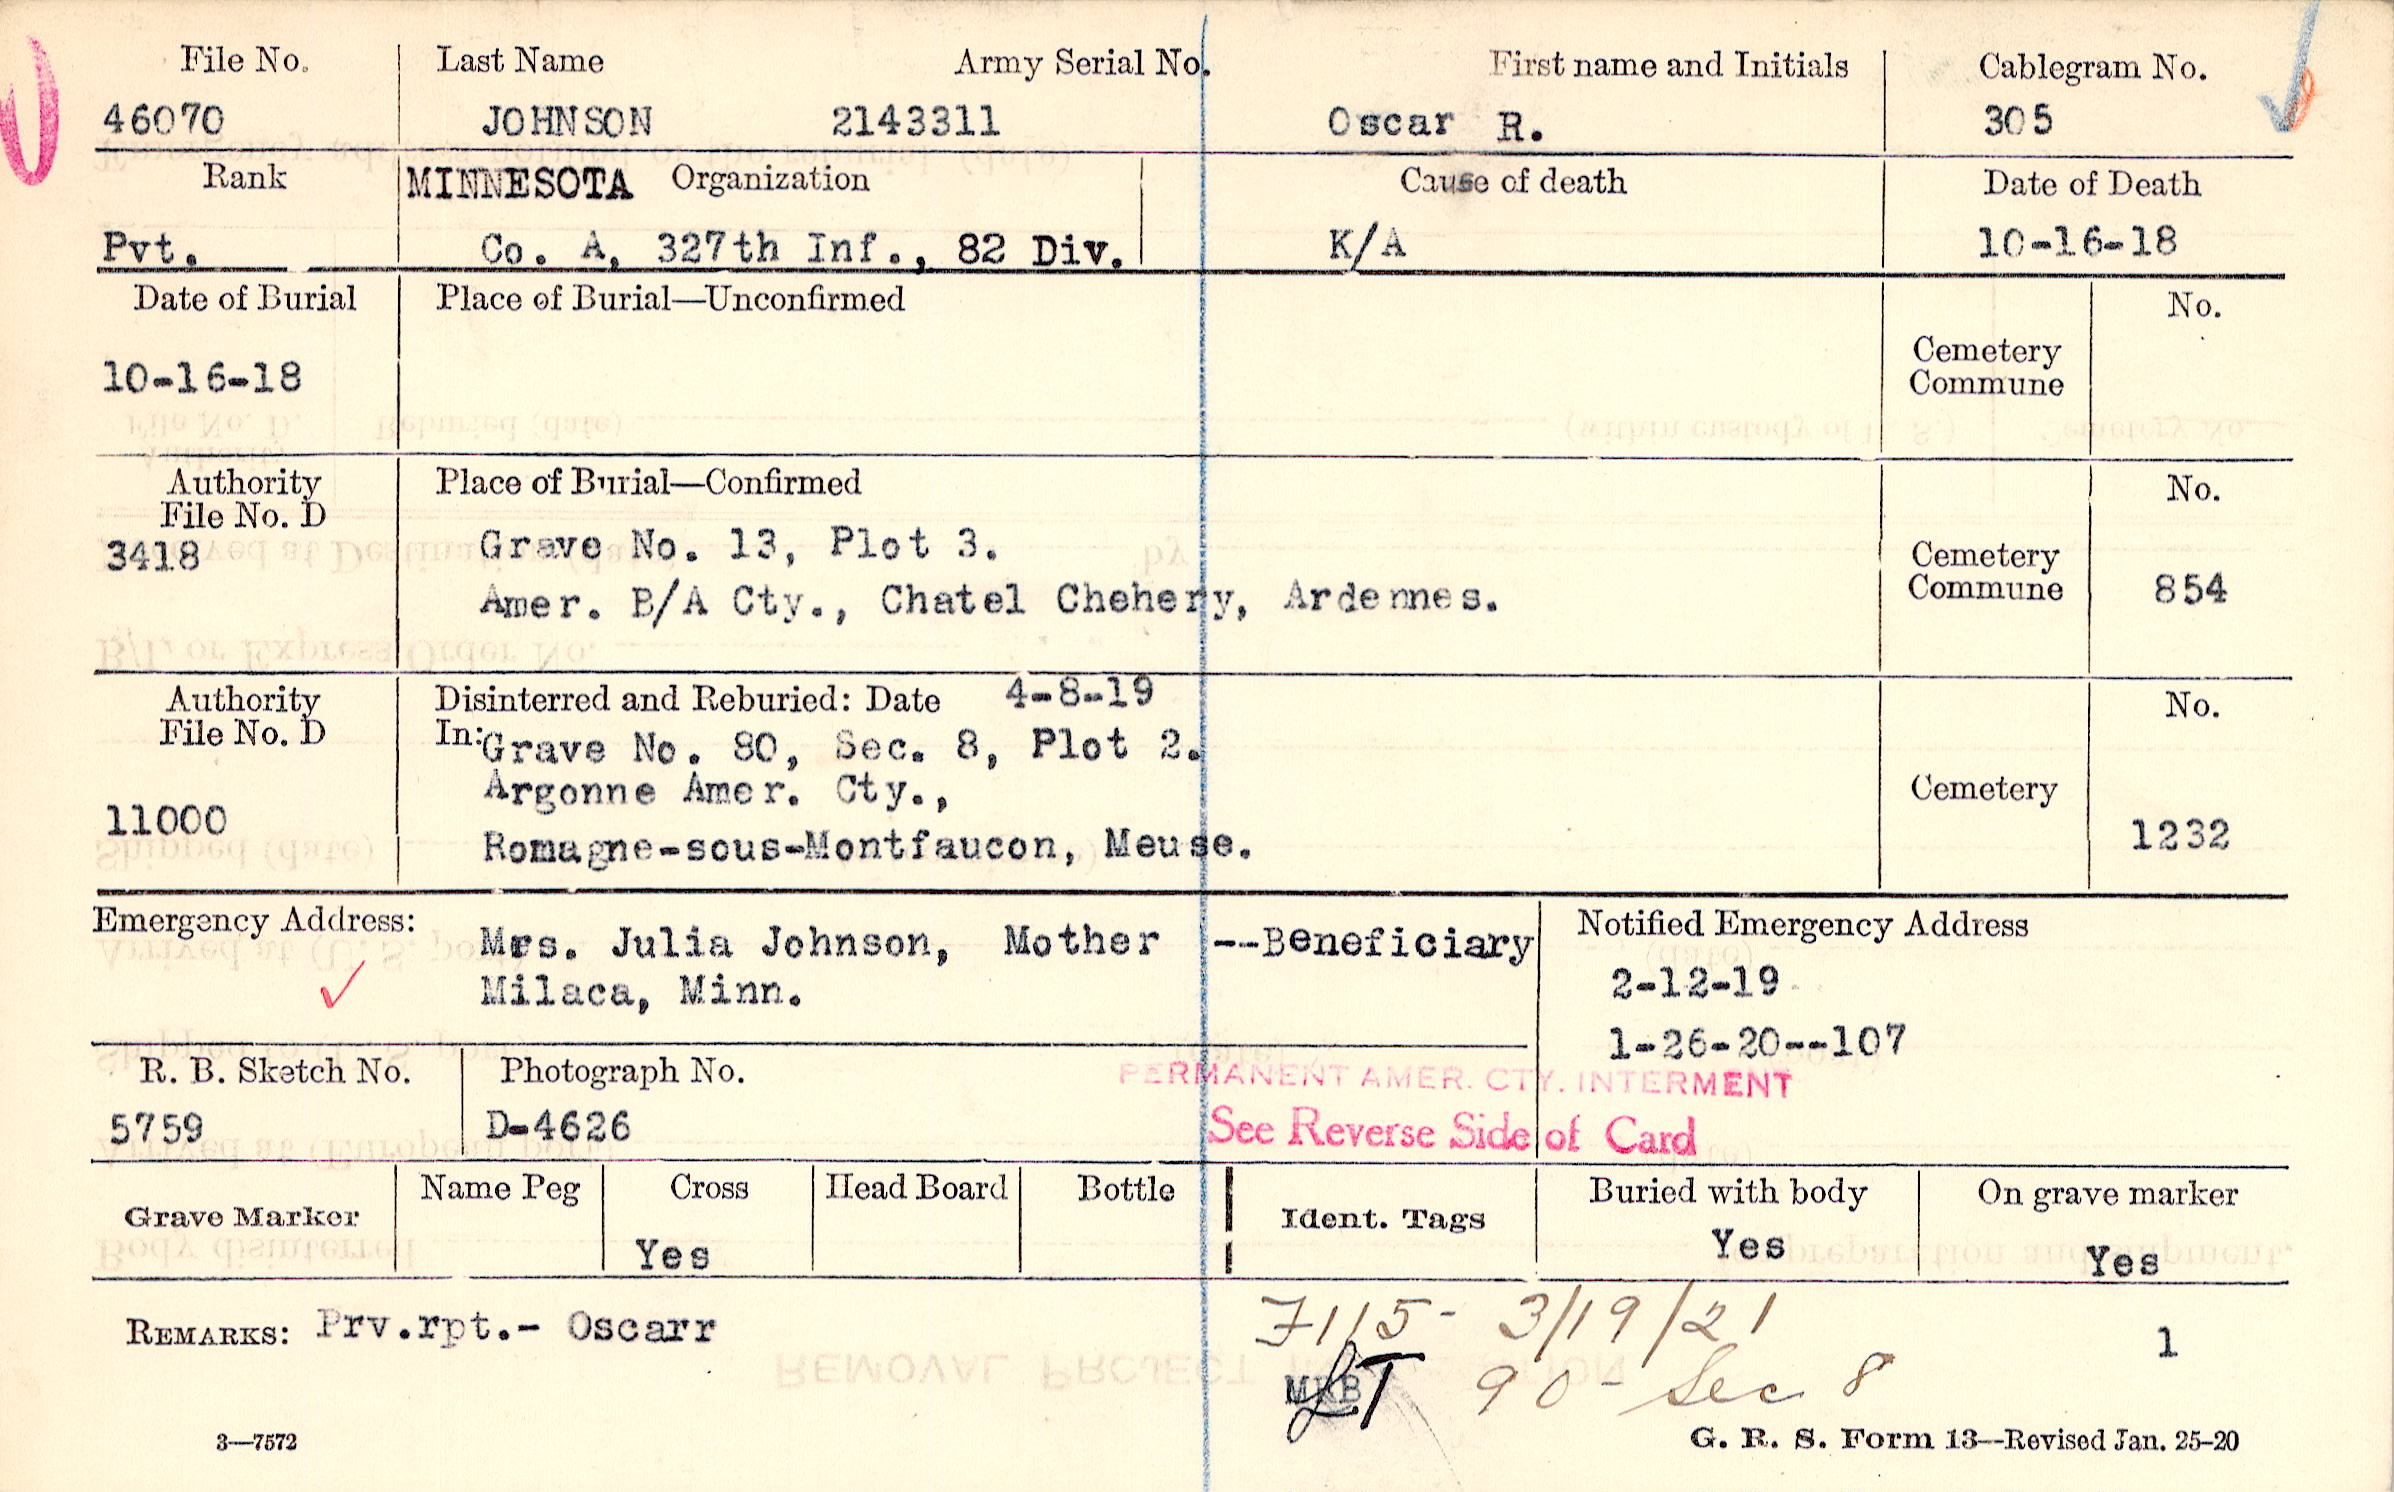 File No. Last Name Army Serial No. First name and Initials Cablegram No.
46070 JOHNSON 2143311 Oscar R. 305
Rank MINNESOTA Organization Cause of death Date of Death
Pvt. Co. A, 327th Inf., 82 Div. K/A 10-16-18
Date of Burial Place of Burial—Unconfirmed No.
10-16-18 Cemetery
Commune
Authority Place of Burial—Confirmed No.
File No. D
3418 Grave No. 13, Plot 3. Cemetery
Amer. B/A Cty., Chatel Chehery, Ardennes. Commune 854
Authority Disinterred and Reburied: Date 4-8-19 No.
File No. D In: Grave No. 80, Sec. 8, Plot 2.
Argonne Amer. Cty., Cemetery
11000 Romagne-sous-Montfaucon, Meuse. 1232
Emergency Address: Mrs. Julia Johnson, Mother --Beneficiary Notified Emergency Address
Milaca, Minn. 2-12-19
1-26-20--107
R. B. Sketch No. Photograph No. PERMANENT AMER. CTY. INTERMENT
5759 D-4626 See Reverse Side of Card
Grave Marker Name Peg Cross Head Board Bottle Ident. Tags Buried with body On grave marker
Yes Yes Yes
REMARKS: Prv.rpt.- Oscarr 7115- 3/19/21 1
90 - Sec 8
3—7572 G. R. S. Form 13—Revised Jan. 25-20